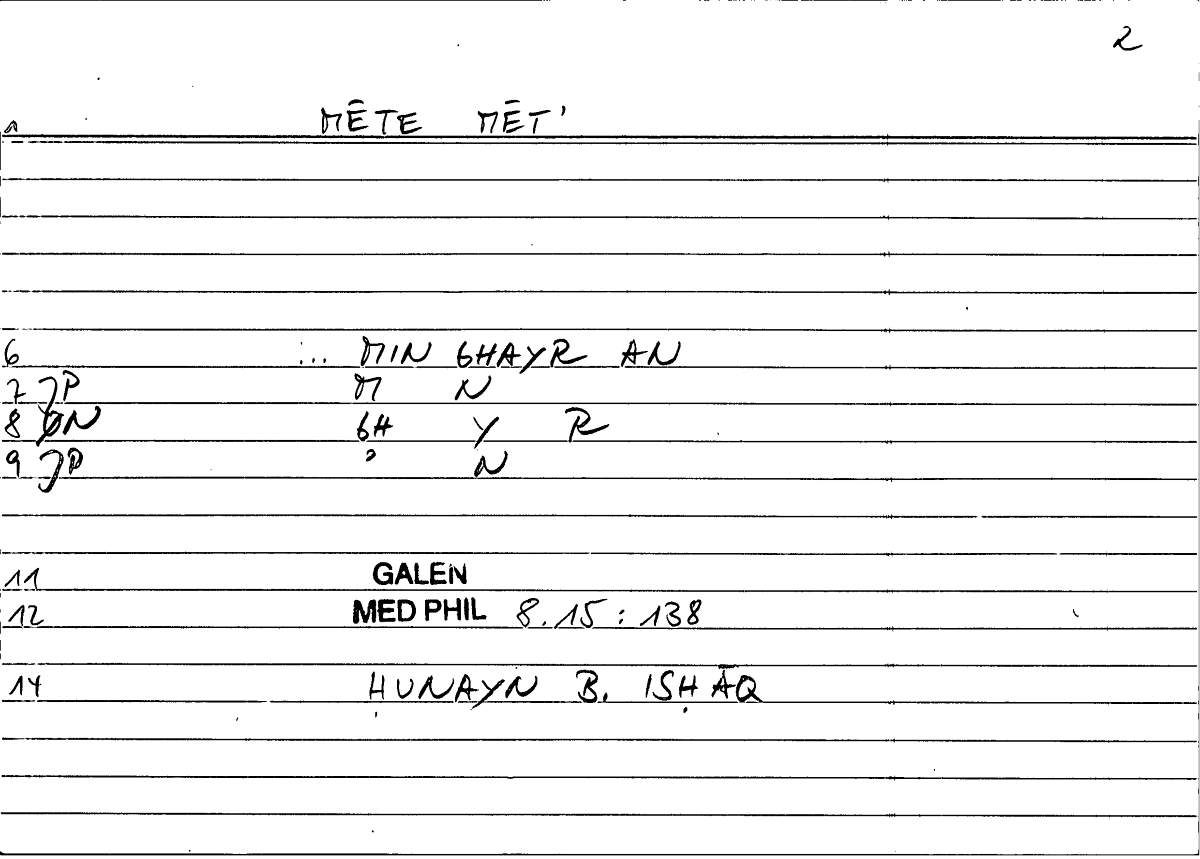 2
1 MĒTE MĒT'
6 ... MIN GHAYR AN
7 JP M N
8 ON GH Y R
9 JP ʾ N
11 GALEN
12 MED PHIL 8.15 : 138
14 ḤUNAYN B. ISḤĀQ